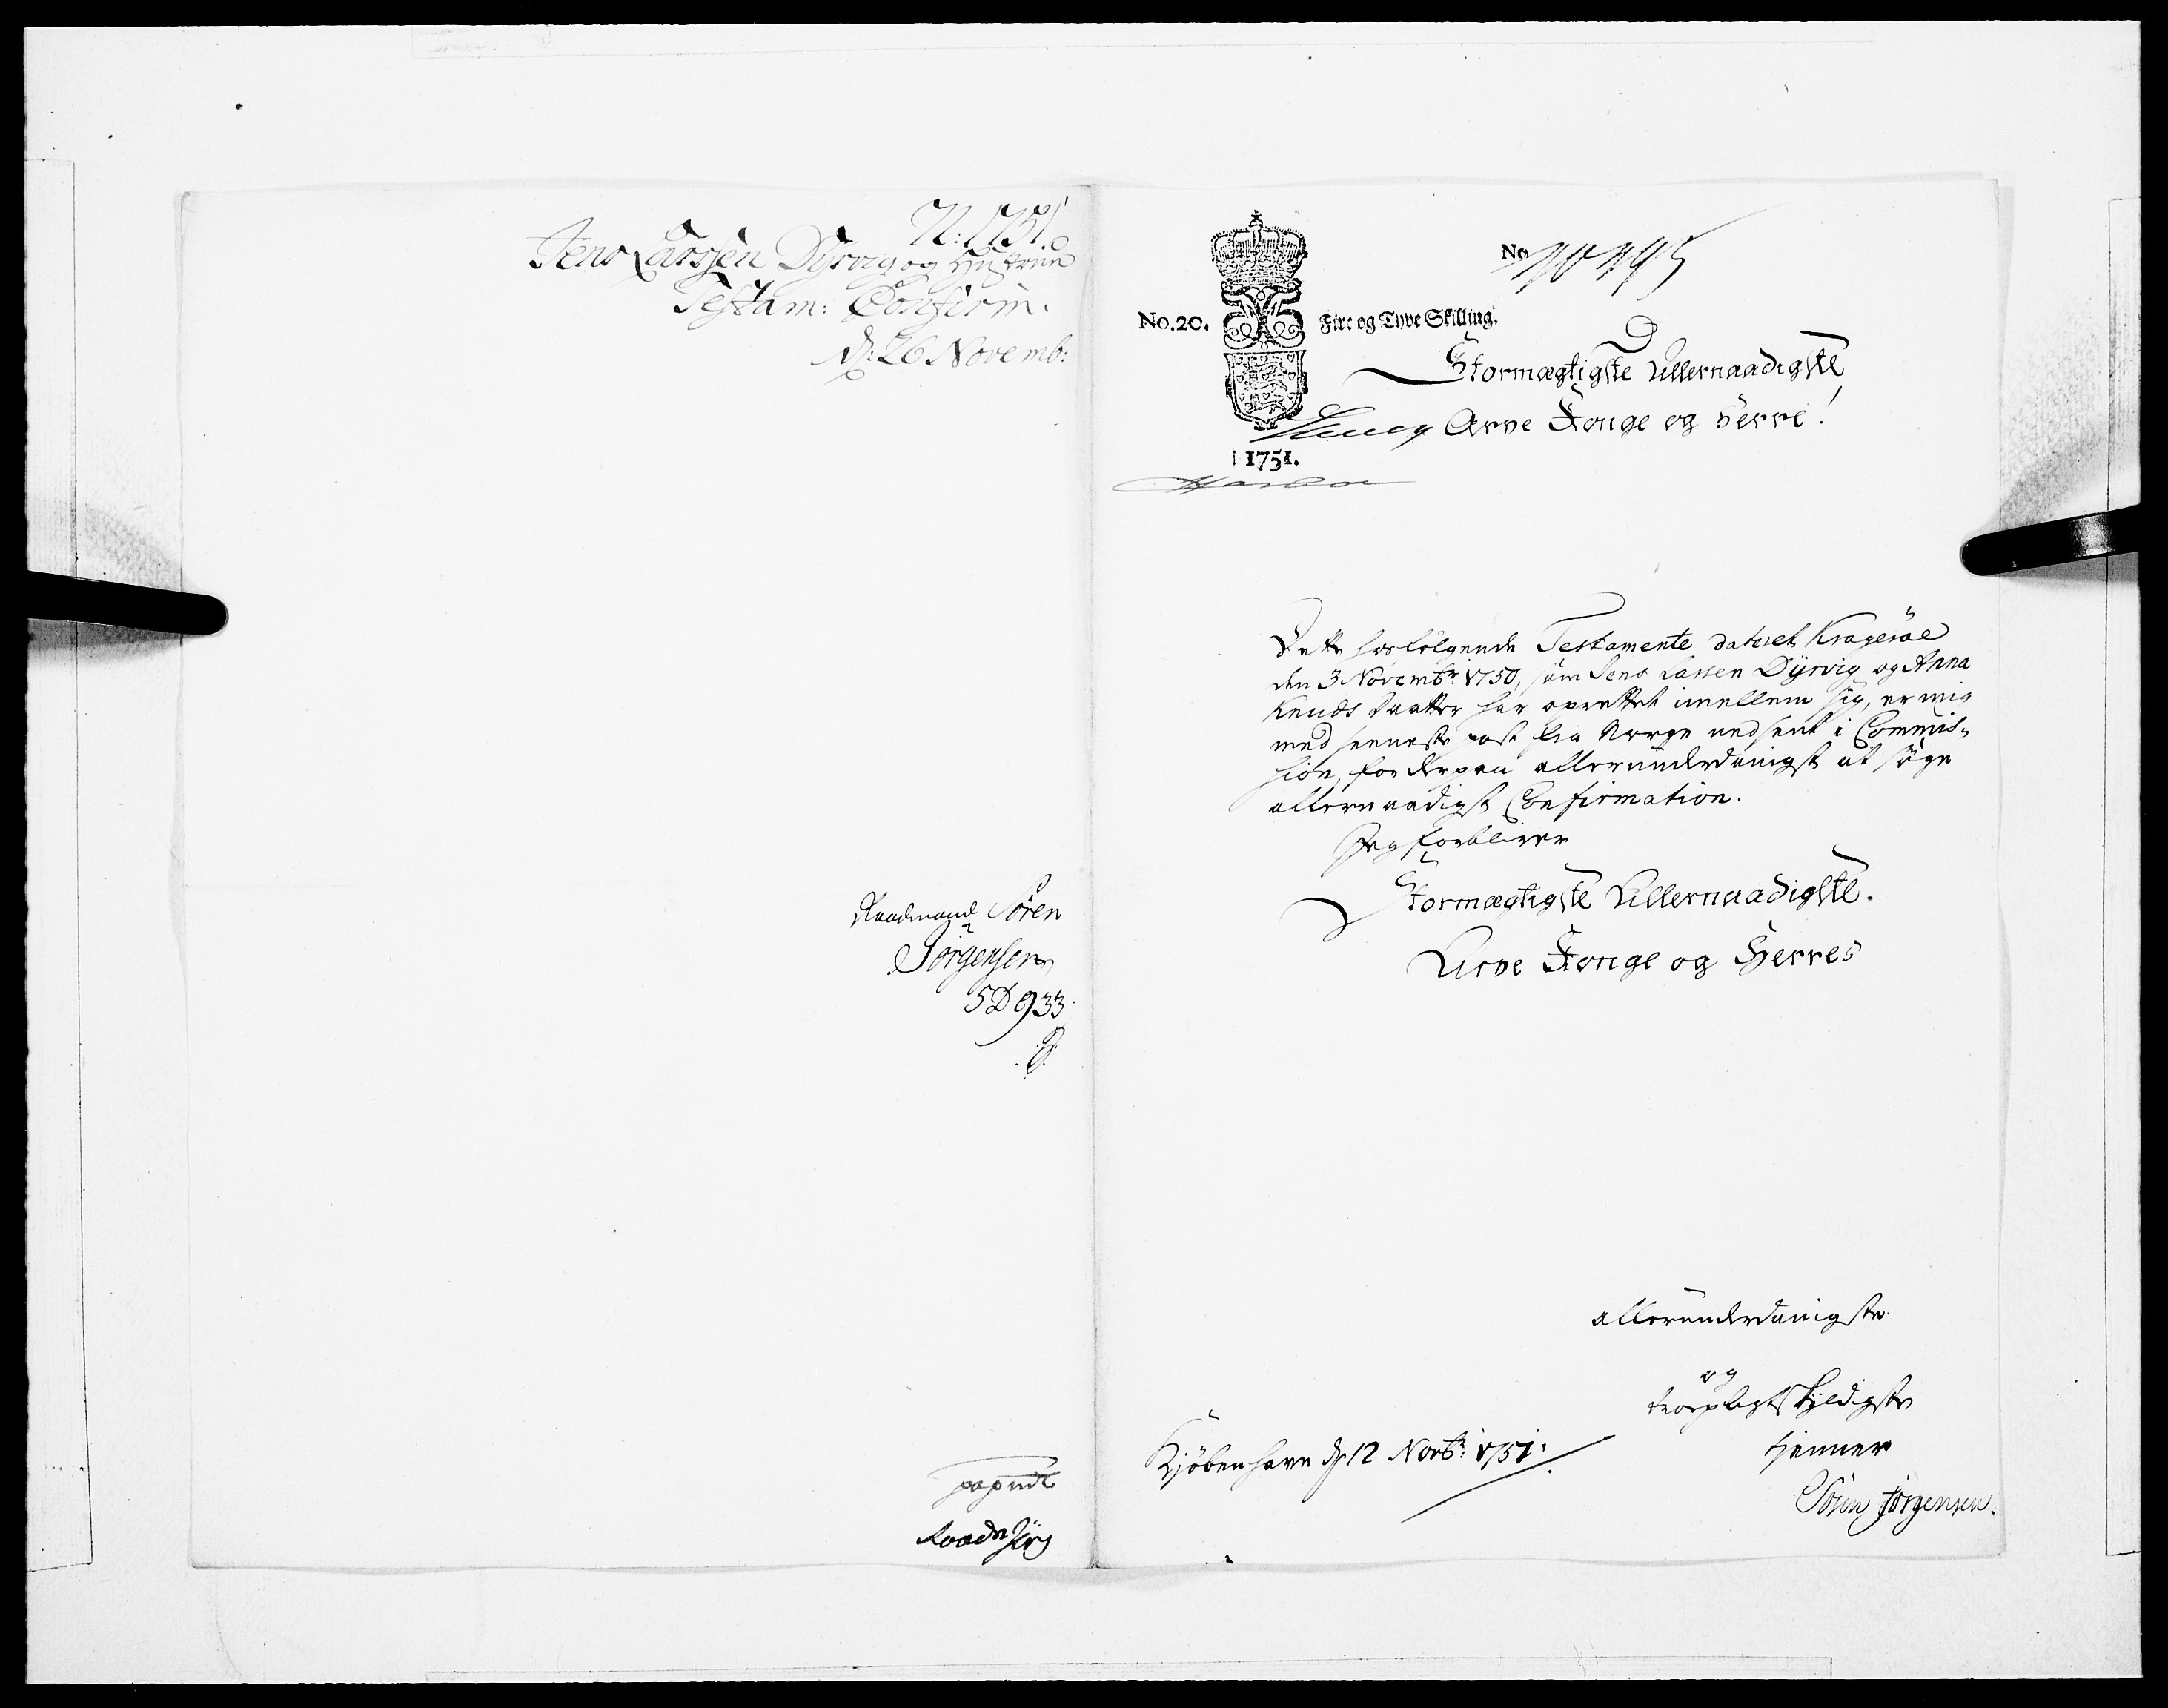 N: 1751.
Jens Larssen Dyrvig og Hustrue
Testam: Confirm.
d: 26 Novemb:
Raadmand Sören
Jörgensen
5D 933
No 10495
No. 20.
Fire og Tyve Skilling.
Stormægtigste Allernaadigste
Arve Konge og Herre!
1751.
Dette hosfölgende Testamente dateret Krageröe
den 3 Novembr: 1750, som Jens Larsen Dÿrvig og Anna
Knuds Daatter har oprettet imellem sig, er mig
med seeneste post fra Norge nedsent i Commis-
sion, for derpaa allerunderdanigst at söge
allernaadigst Confirmation.
Jeg forbliver
Stormægtigste Allernaadigste.
Arve Konge og Herres
allerunderdanigste
og
troepligtskyldigste
tienner
Kjöbenhavn d. 12 Novbr: 1751.
Sören Jörgensen.